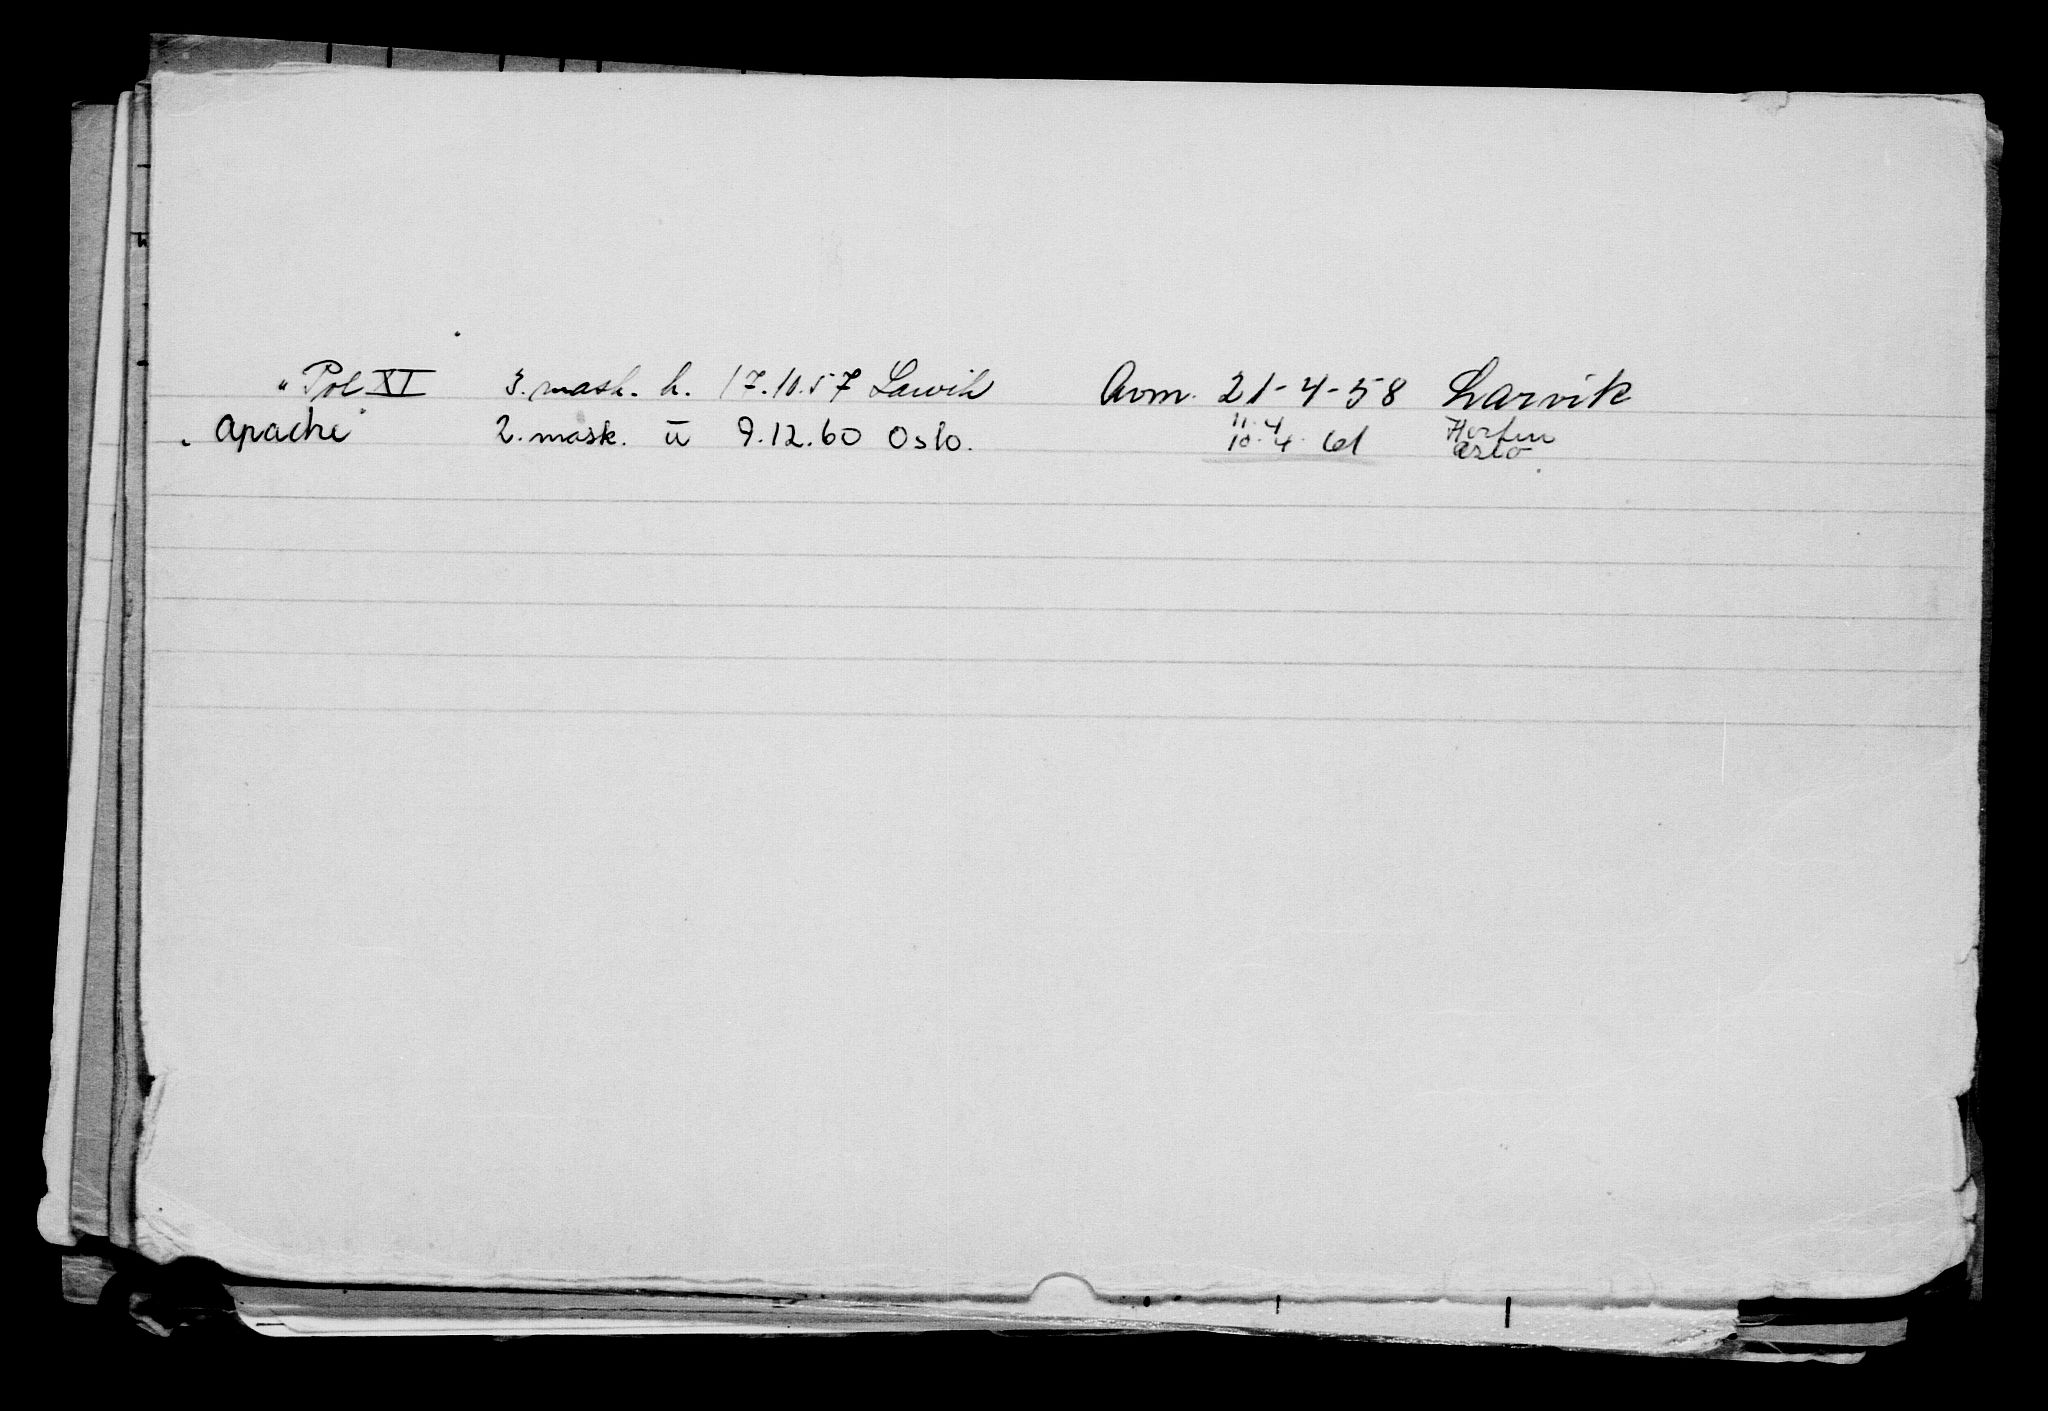 " Pol XI 3. mask. h. 17.10.57 Larvik Avm. 21-4-58 Larvik
Apache 2. mask. u 9.12.60 Oslo. 11.4
10.4.61 Oslo